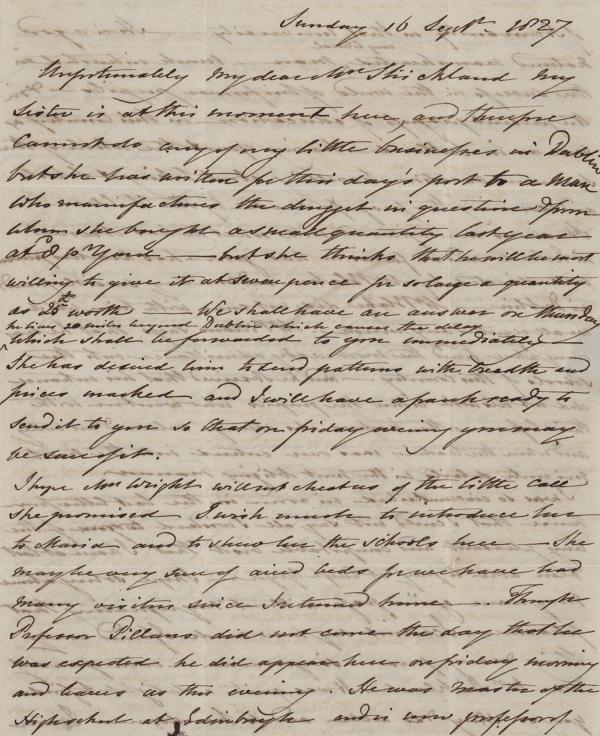 Sunday 16 Septr. 1827
Unfortunately my dear Mrs Strickland my
sister is at this moment here, and therefore
cannot do any of my little businesses in Dublin
but she has written per this day's post to a Man
who manufactures the drugget in question & from
whom she bought a small quantity last year
at 8d pr Yard — but she thinks that he will be most
willing to give it at seven pence for so large a quantity
as 25£ worth — We shall have an answer on thursday
he lives 20 miles beyond Dublin which causes the delay
which shall be forwarded to you immediately —
She has desired him to send patterns with breadth and
prices marked and I will have a frank ready to
send it to you so that on friday evening you may
be sure of it.
I hope Mrs Wright will not cheat us of the little call
she promised I wish much to introduce her
to Maria and to shew her the schools here — She
may be very sure of aired beds for we have had
many visitors since I returned home —. Though
Professor Pillans did not come the day that he
was expected he did appear here on friday morning
and leaves us this evening. He was master of the
High school at Edinburgh and is now professor of